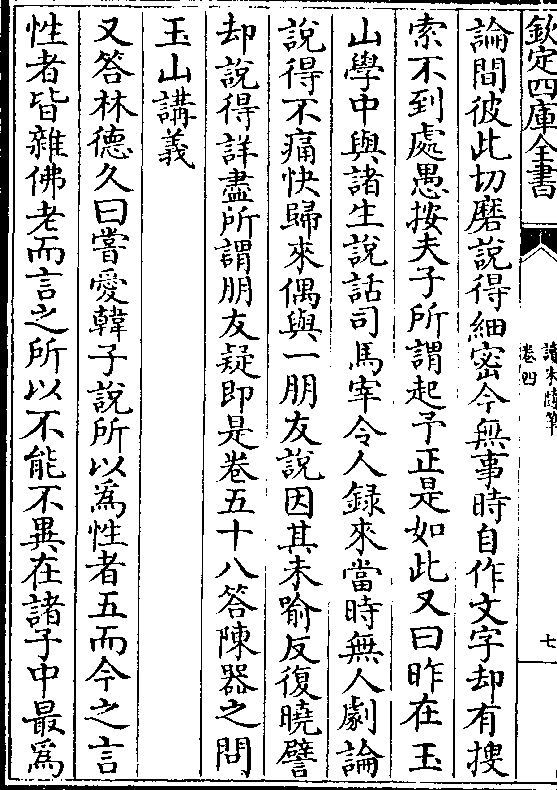 欽定四庫全書
讀朱隨筆
卷四
七
論間彼此切磨說得細密今無事時自作文字却有搜
索不到處愚按夫子所謂起予正是如此又曰昨在玉
山學中與諸生說話司馬宰令人録來當時無人劇論
說得不痛快歸來偶與一朋友說因其未喻反復曉譬
却說得詳盡所謂朋友疑即是卷五十八答陳器之問
玉山講義
又答林德久曰嘗愛韓子說所以為性者五而今之言
性者皆雜佛老而言之所以不能不異在諸子中最為